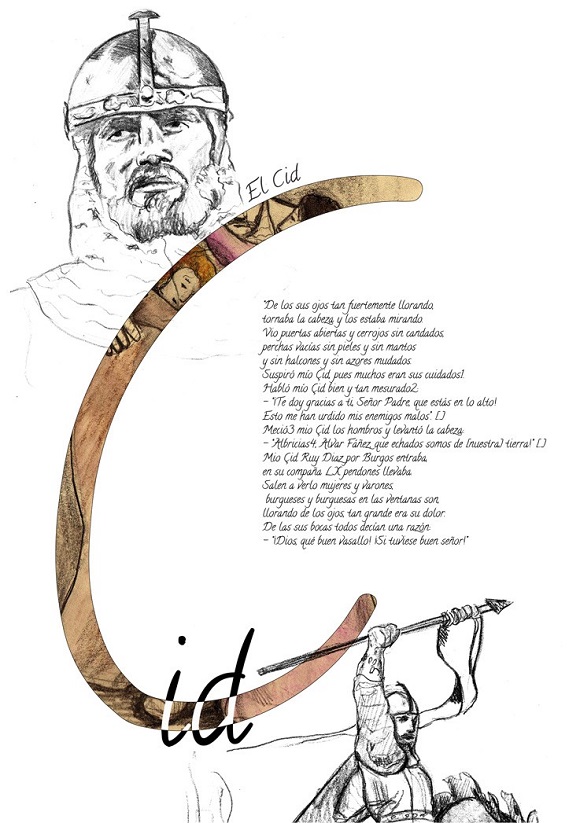 El Cid
"De los sus ojos tan fuertemente llorando,
tornaba la cabeza y los estaba mirando.
Vio puertas abiertas y cerrojos sin candados,
perchas vacías sin pieles y sin mantos
y sin halcones y sin azores mudados.
Suspiró mío Çid, pues muchos eran sus cuidados1.
Habló mío Çid bien y tan mesurado2:
- "¡Te doy gracias a ti, Señor Padre, que estás en lo alto!
Esto me han urdido mis enemigos malos". [.]
Meció3 mío Çid los hombros y levantó la cabeza:
- "Albricias4, Álvar Fáñez, que echados somos de [nuestra] tierra!" [.]
Mío Çid Ruy Díaz por Burgos entraba,
en su compaña LX pendones llevaba.
Salen a verlo mujeres y varones,
burgueses y burguesas en las ventanas son,
llorando de los ojos, tan grande era su dolor.
De las sus bocas todos decían una razón:
- "¡Dios, qué buen vasallo! ¡Si tuviese buen señor!"
Cid